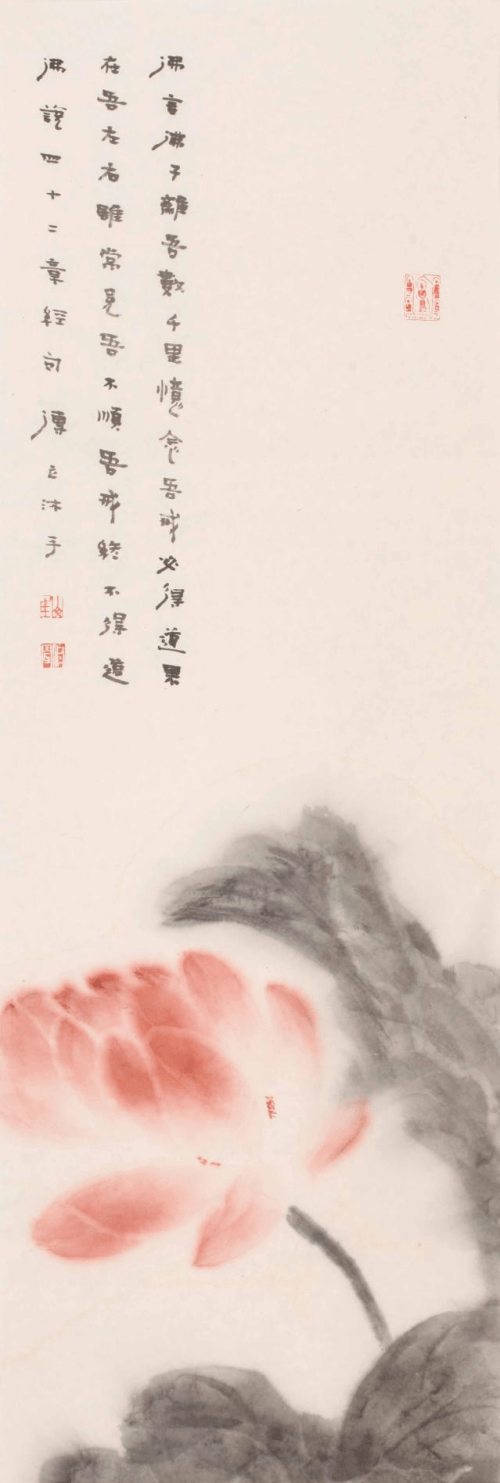 佛言佛子離吾數千里憶念吾戒必得道果
在吾左右雖常見吾不順吾戒終不得道
佛說四十二章經句傳立沐手